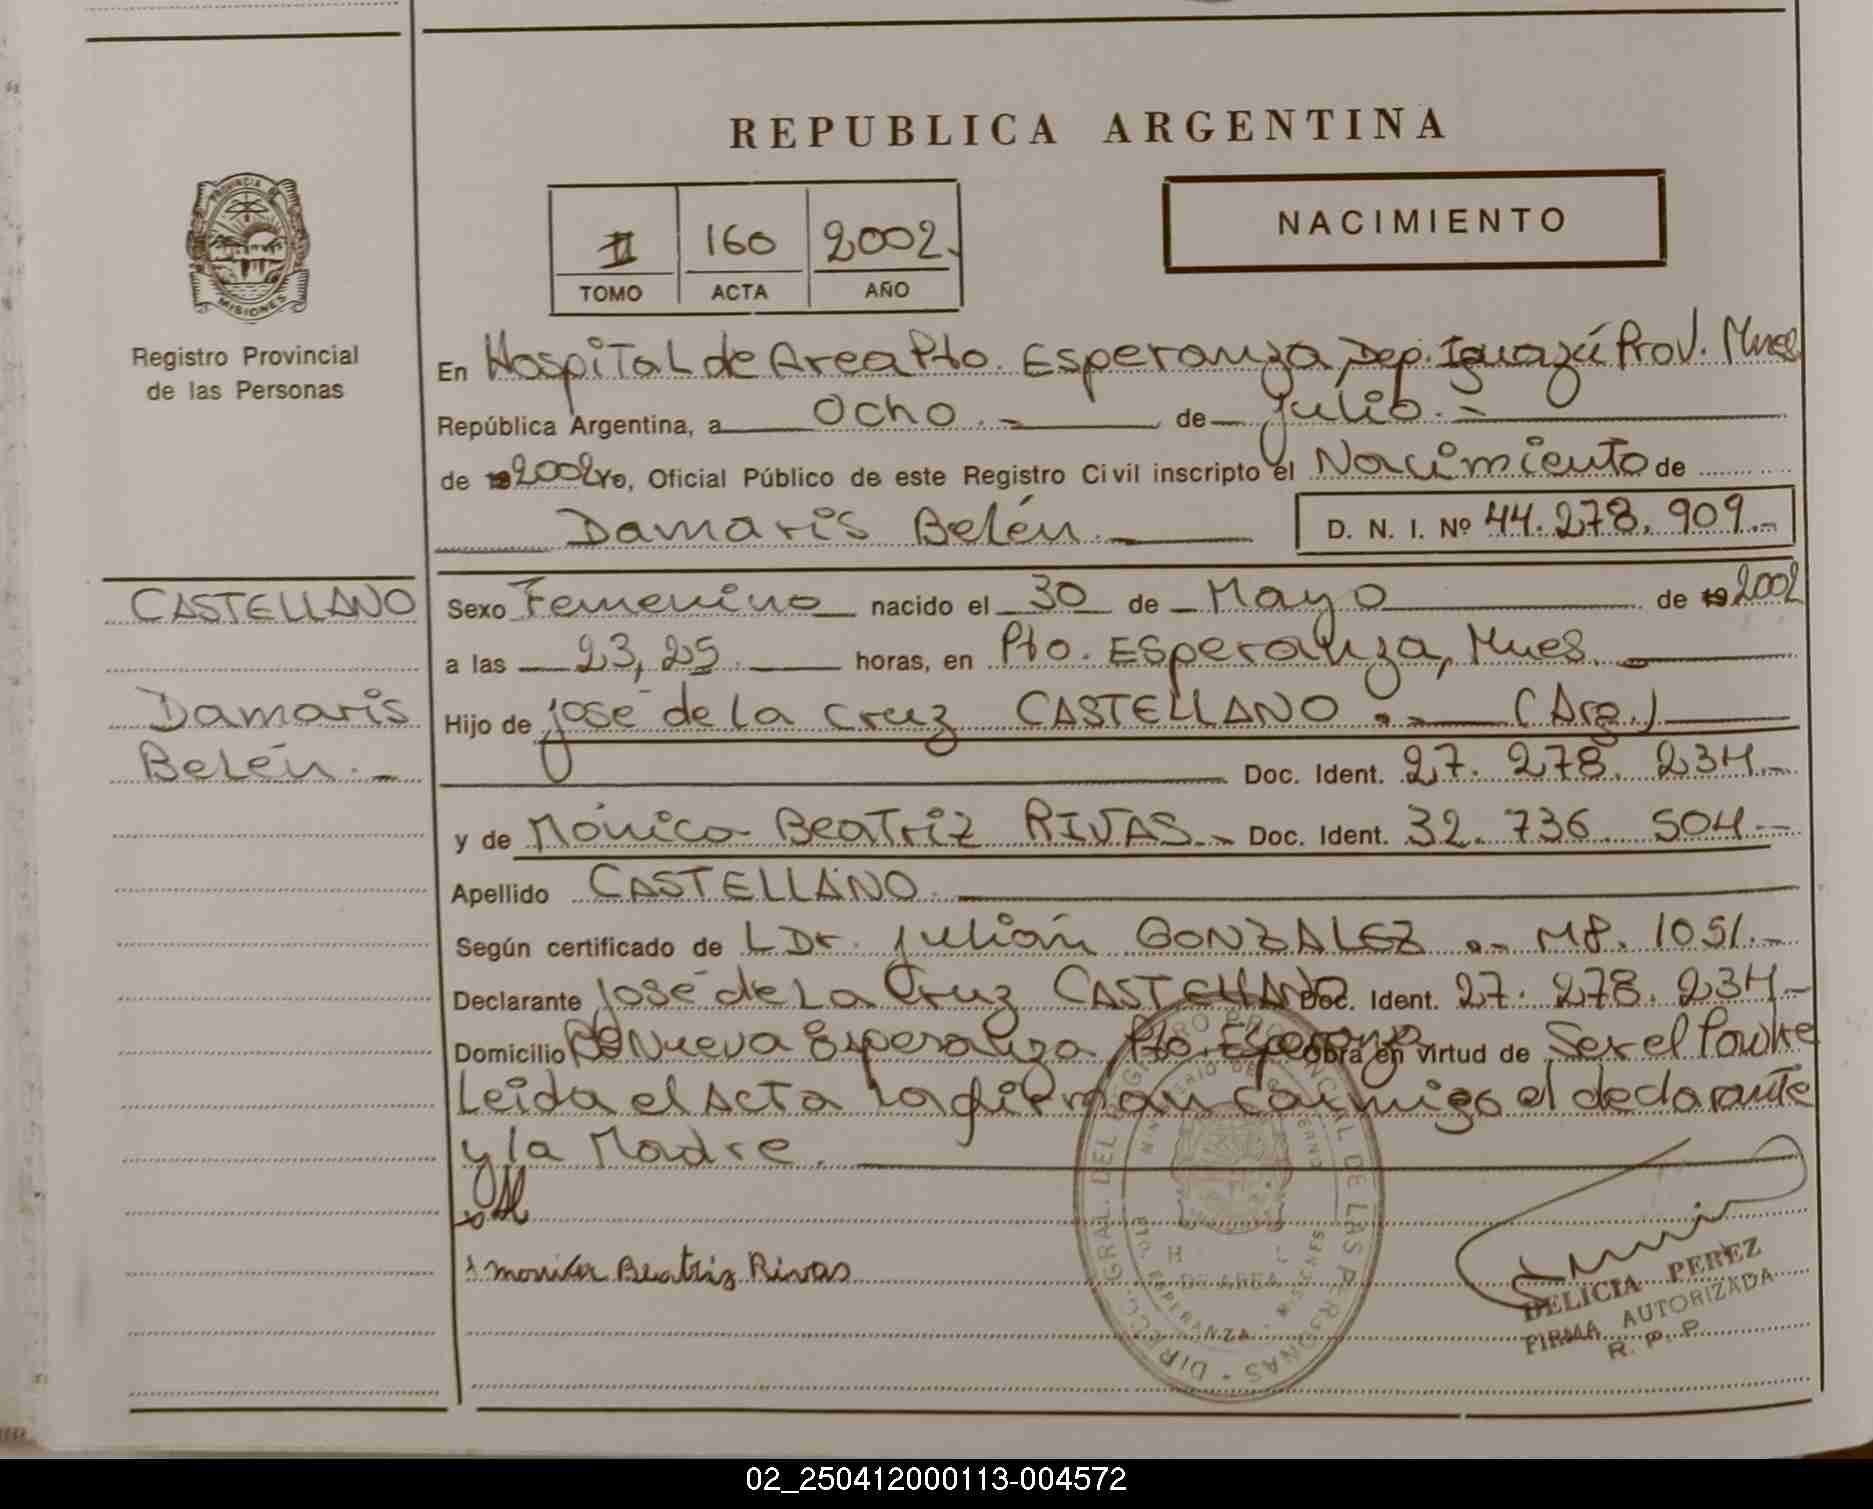 REPUBLICA ARGENTINA
NACIMIENTO
II 160 2002.
TOMO ACTA AÑO
PROVINCIA DE
MISIONES
Registro Provincial
de las Personas
En Hospital de Area Pto. Esperanza, Dep. Iguazú Prov. Mnes
República Argentina, a Ocho.- de julio.-
de 19 2002 Yo, Oficial Público de este Registro Civil inscripto el Nacimiento de
Damaris Belén.- D. N. I. Nº 44.278.909.-
CASTELLANO
Damaris
Belén.-
Sexo Femenino nacido el 30 de Mayo de 19 2002
a las 23,25 horas, en Pto. Esperanza, Mnes.
Hijo de josé de la cruz CASTELLANO.- (Arg.)
Doc. Ident. 27.278.234.-
y de Mónica Beatriz RIVAS.- Doc. Ident. 32.736.504.-
Apellido CASTELLANO.
Según certificado de L Dr. julián GONZALEZ.- MP. 1051.-
Declarante josé de La Cruz CASTELLANO Doc. Ident. 27.278.234-
Domicilio Bº Nueva Esperanza Pto. Esperanza Obra en virtud de Ser el Padre
Leida el Acta la firman conmigo el declarante
y la Madre.
x monica Beatriz Rivas
DIRECC. GRAL. DEL REGISTRO PROVINCIAL DE LAS PERSONAS
MINISTERIO DE GOBIERNO
DE AREA
PTO. ESPERANZA - MISIONES
DELICIA PEREZ
FIRMA AUTORIZADA
R. P. P.
02_250412000113-004572